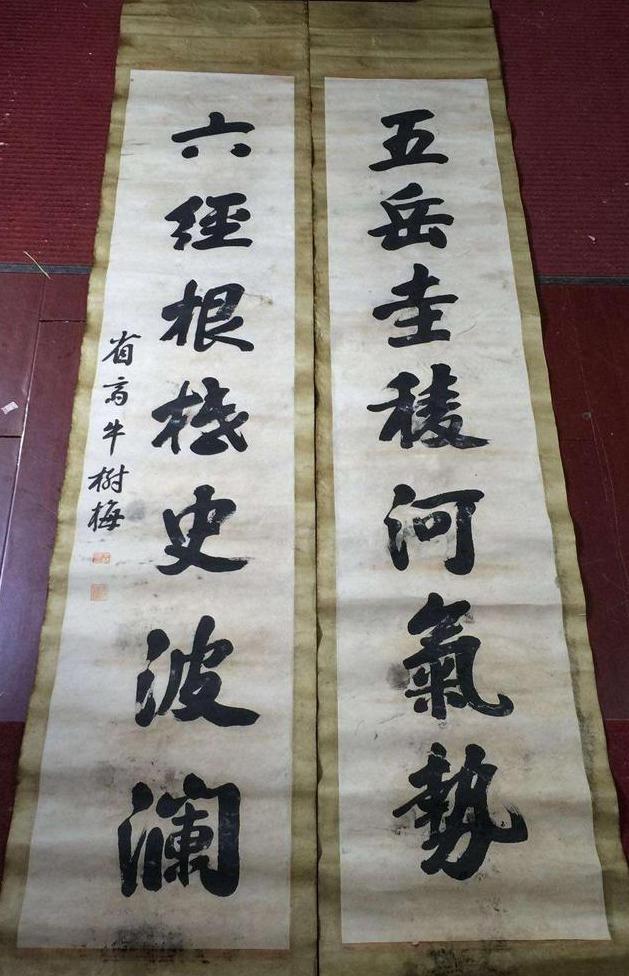 五岳圭稜河氣勢
六經根柢史波瀾
省齋牛樹梅